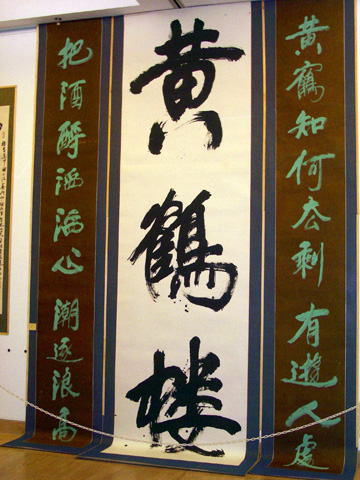 黄鶴楼
黄鶴知何去剩有遊人處
把酒酹滔滔心潮逐浪高